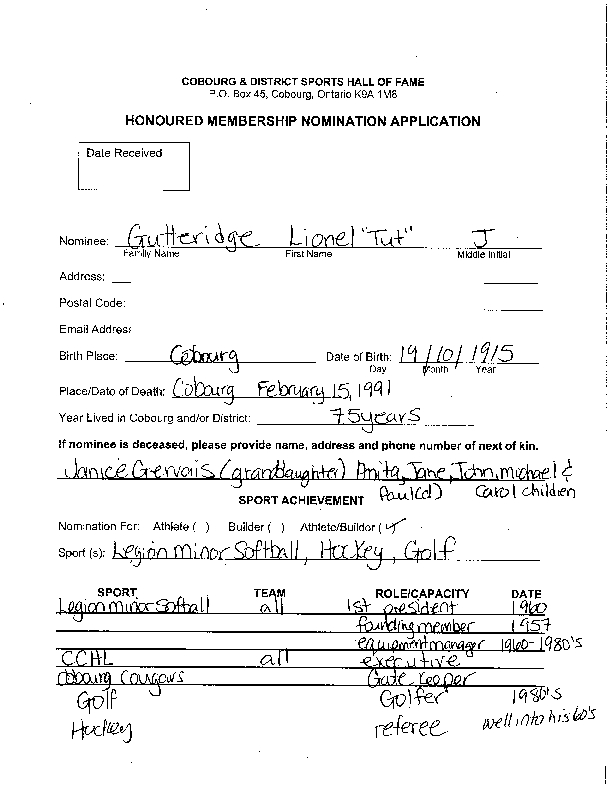 COBOURG & DISTRICT SPORTS HALL OF FAME
P.O. Box 45, Cobourg, Ontario K9A 1M8
HONOURED MEMBERSHIP NOMINATION APPLICATION
Date Received
Nominee: Gutteridge Lionel "Tut" J
Family Name First Name Middle Initial
Address:
Postal Code:
Email Address
Birth Place: Cobourg Date of Birth: 19/10/1915
Day Month Year
Place/Date of Death: Cobourg February 15, 1991
Year Lived in Cobourg and/or District: 75 years
If nominee is deceased, please provide name, address and phone number of next of kin.
Janice Gervais (granddaughter) Anita, Jane, John, Michael &
Paul(d) Carol children
SPORT ACHIEVEMENT
Nomination For: Athlete ( ) Builder ( ) Athlete/Builder (✓)
Sport (s): Legion Minor Softball, Hockey, Golf
SPORT TEAM ROLE/CAPACITY DATE
Legion minor Softball all 1st president 1960
founding member 1957
equipment manager 1960-1980's
CCHL all executive
Cobourg Cougars Gate Keeper
Golf Golfer 1980's
Hockey referee well into his 60's